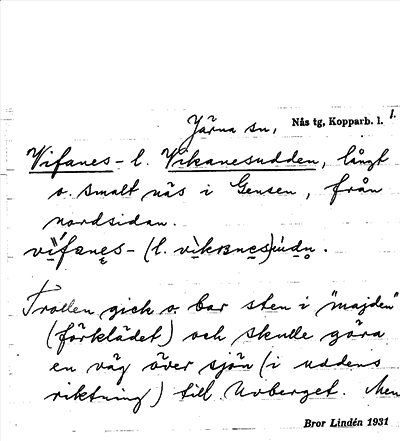 Järna sn, Nås tg, Kopparb. l. 1.
Vifanes- l. Vikanesudden, långt
o. smalt näs i Gensen, från
nordsidan.
vìfanes- (l. vìkanesùdn).
Trollen gick o. bar sten i "majden"
(förklädet) och skulle göra
en väg över sjön (i uddens
riktning) till Uvberget. Men
Bror Lindén 1931